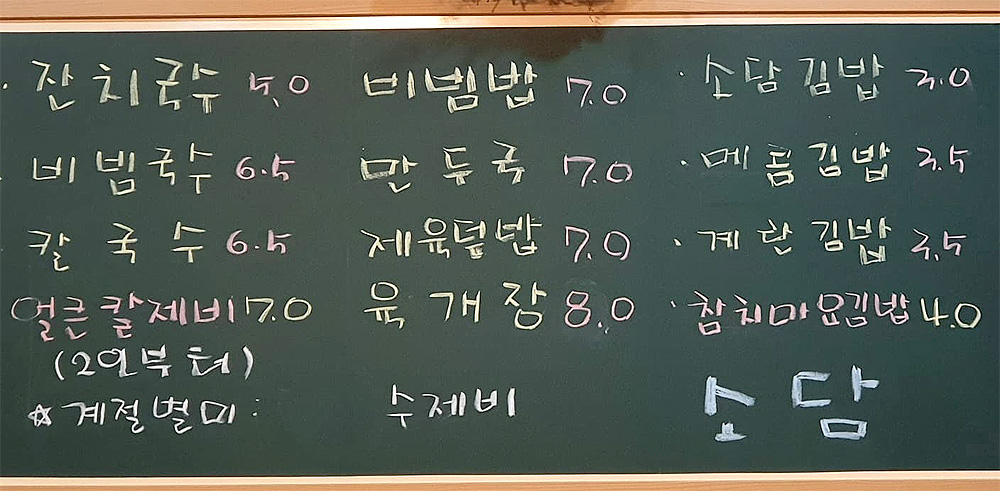 · 잔치국수 5.0 비빔밥 7.0 · 소담김밥 3.0
· 비빔국수 6.5 만두국 7.0 · 메돔김밥 3.5
· 칼국수 6.5 제육덮밥 7.0 · 계란김밥 3.5
얼큰칼제비 7.0 육개장 8.0 · 참치마요김밥 4.0
(2인부터)
☆계절별미: 수제비 소담